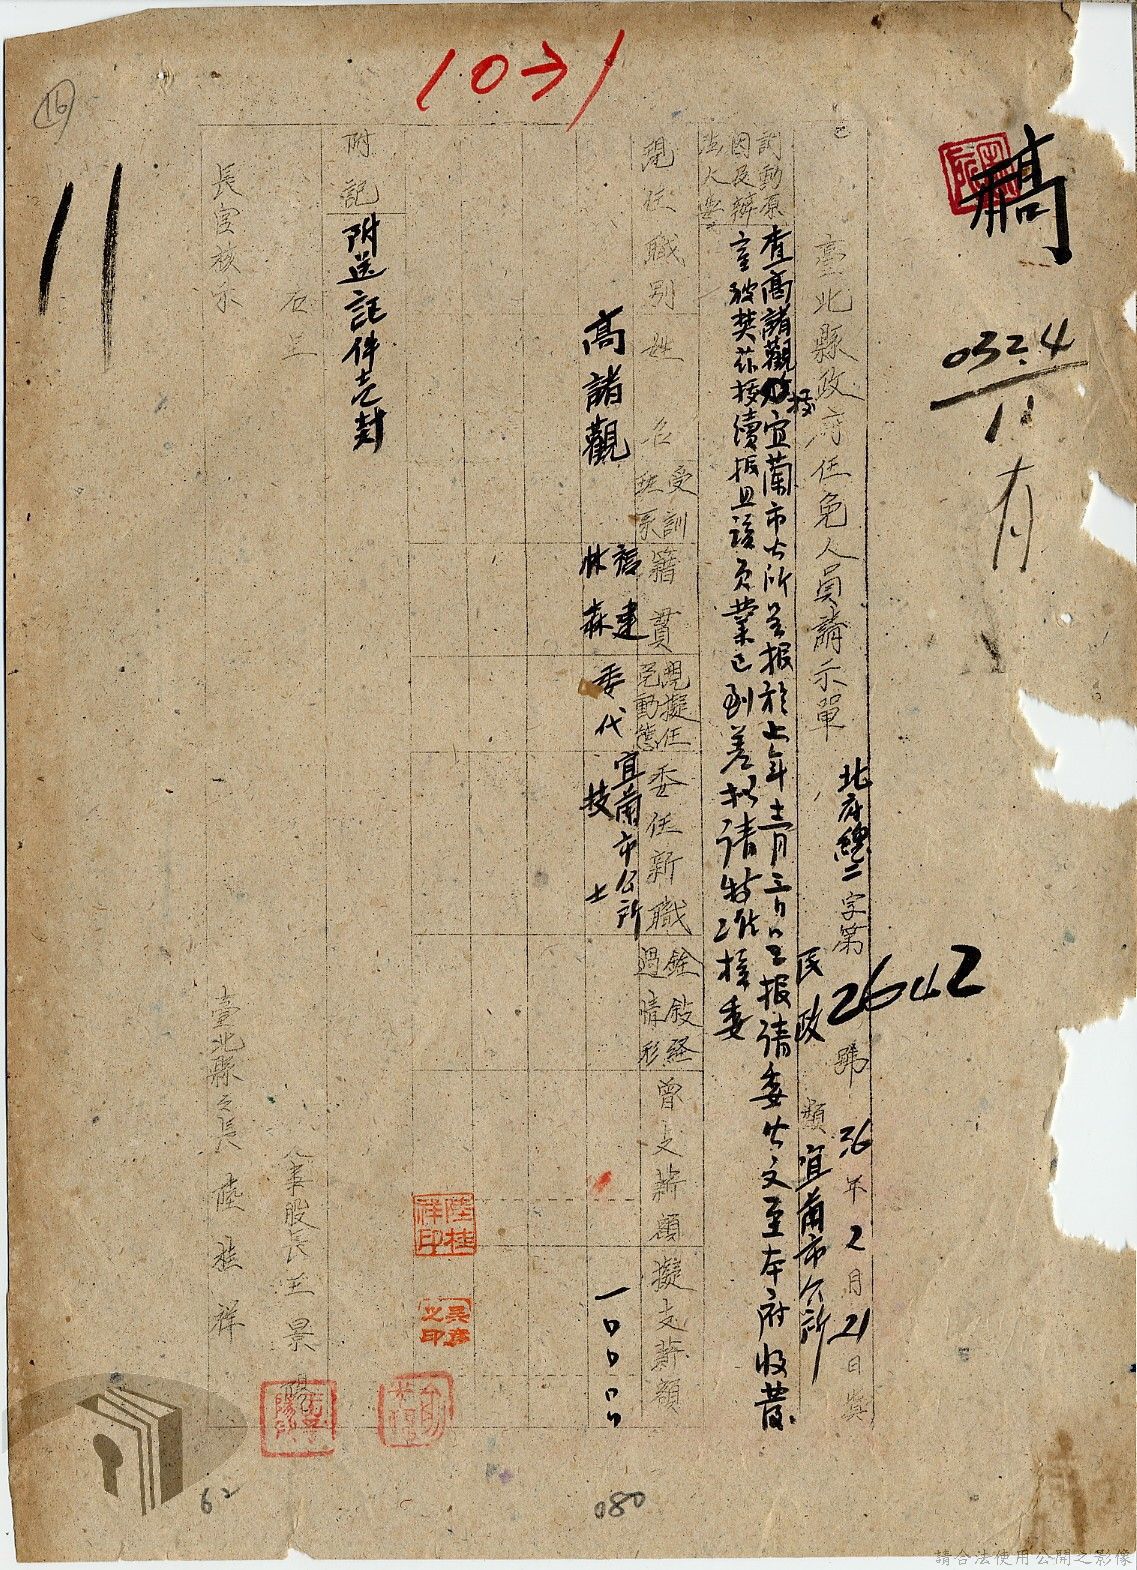 10→1
16
稿
11
032.4
11
臺北縣政府任免人員請示單
北府總二字第2642號 36年2月21日
民政類 宜蘭市公所
調動原因及辦法
查高諸觀 宜蘭市公所呈報於上年十二月三日呈報請委 文至本府收發
室被焚茲 續報且該員業已到差擬請特准 委
現任職別
姓名
受訓班系
籍貫
現擬任免動態
委任新職
銓敘經過情形
曾支薪額
擬支薪額
高諸觀
福建林森
委代
宜蘭市公所技士
一〇〇〇〇
附記
附送証件壱封
右呈
長官核示
人事股長王景陽
臺北縣縣長陸桂祥
陸桂祥印
62
080
請合法使用公開之影像